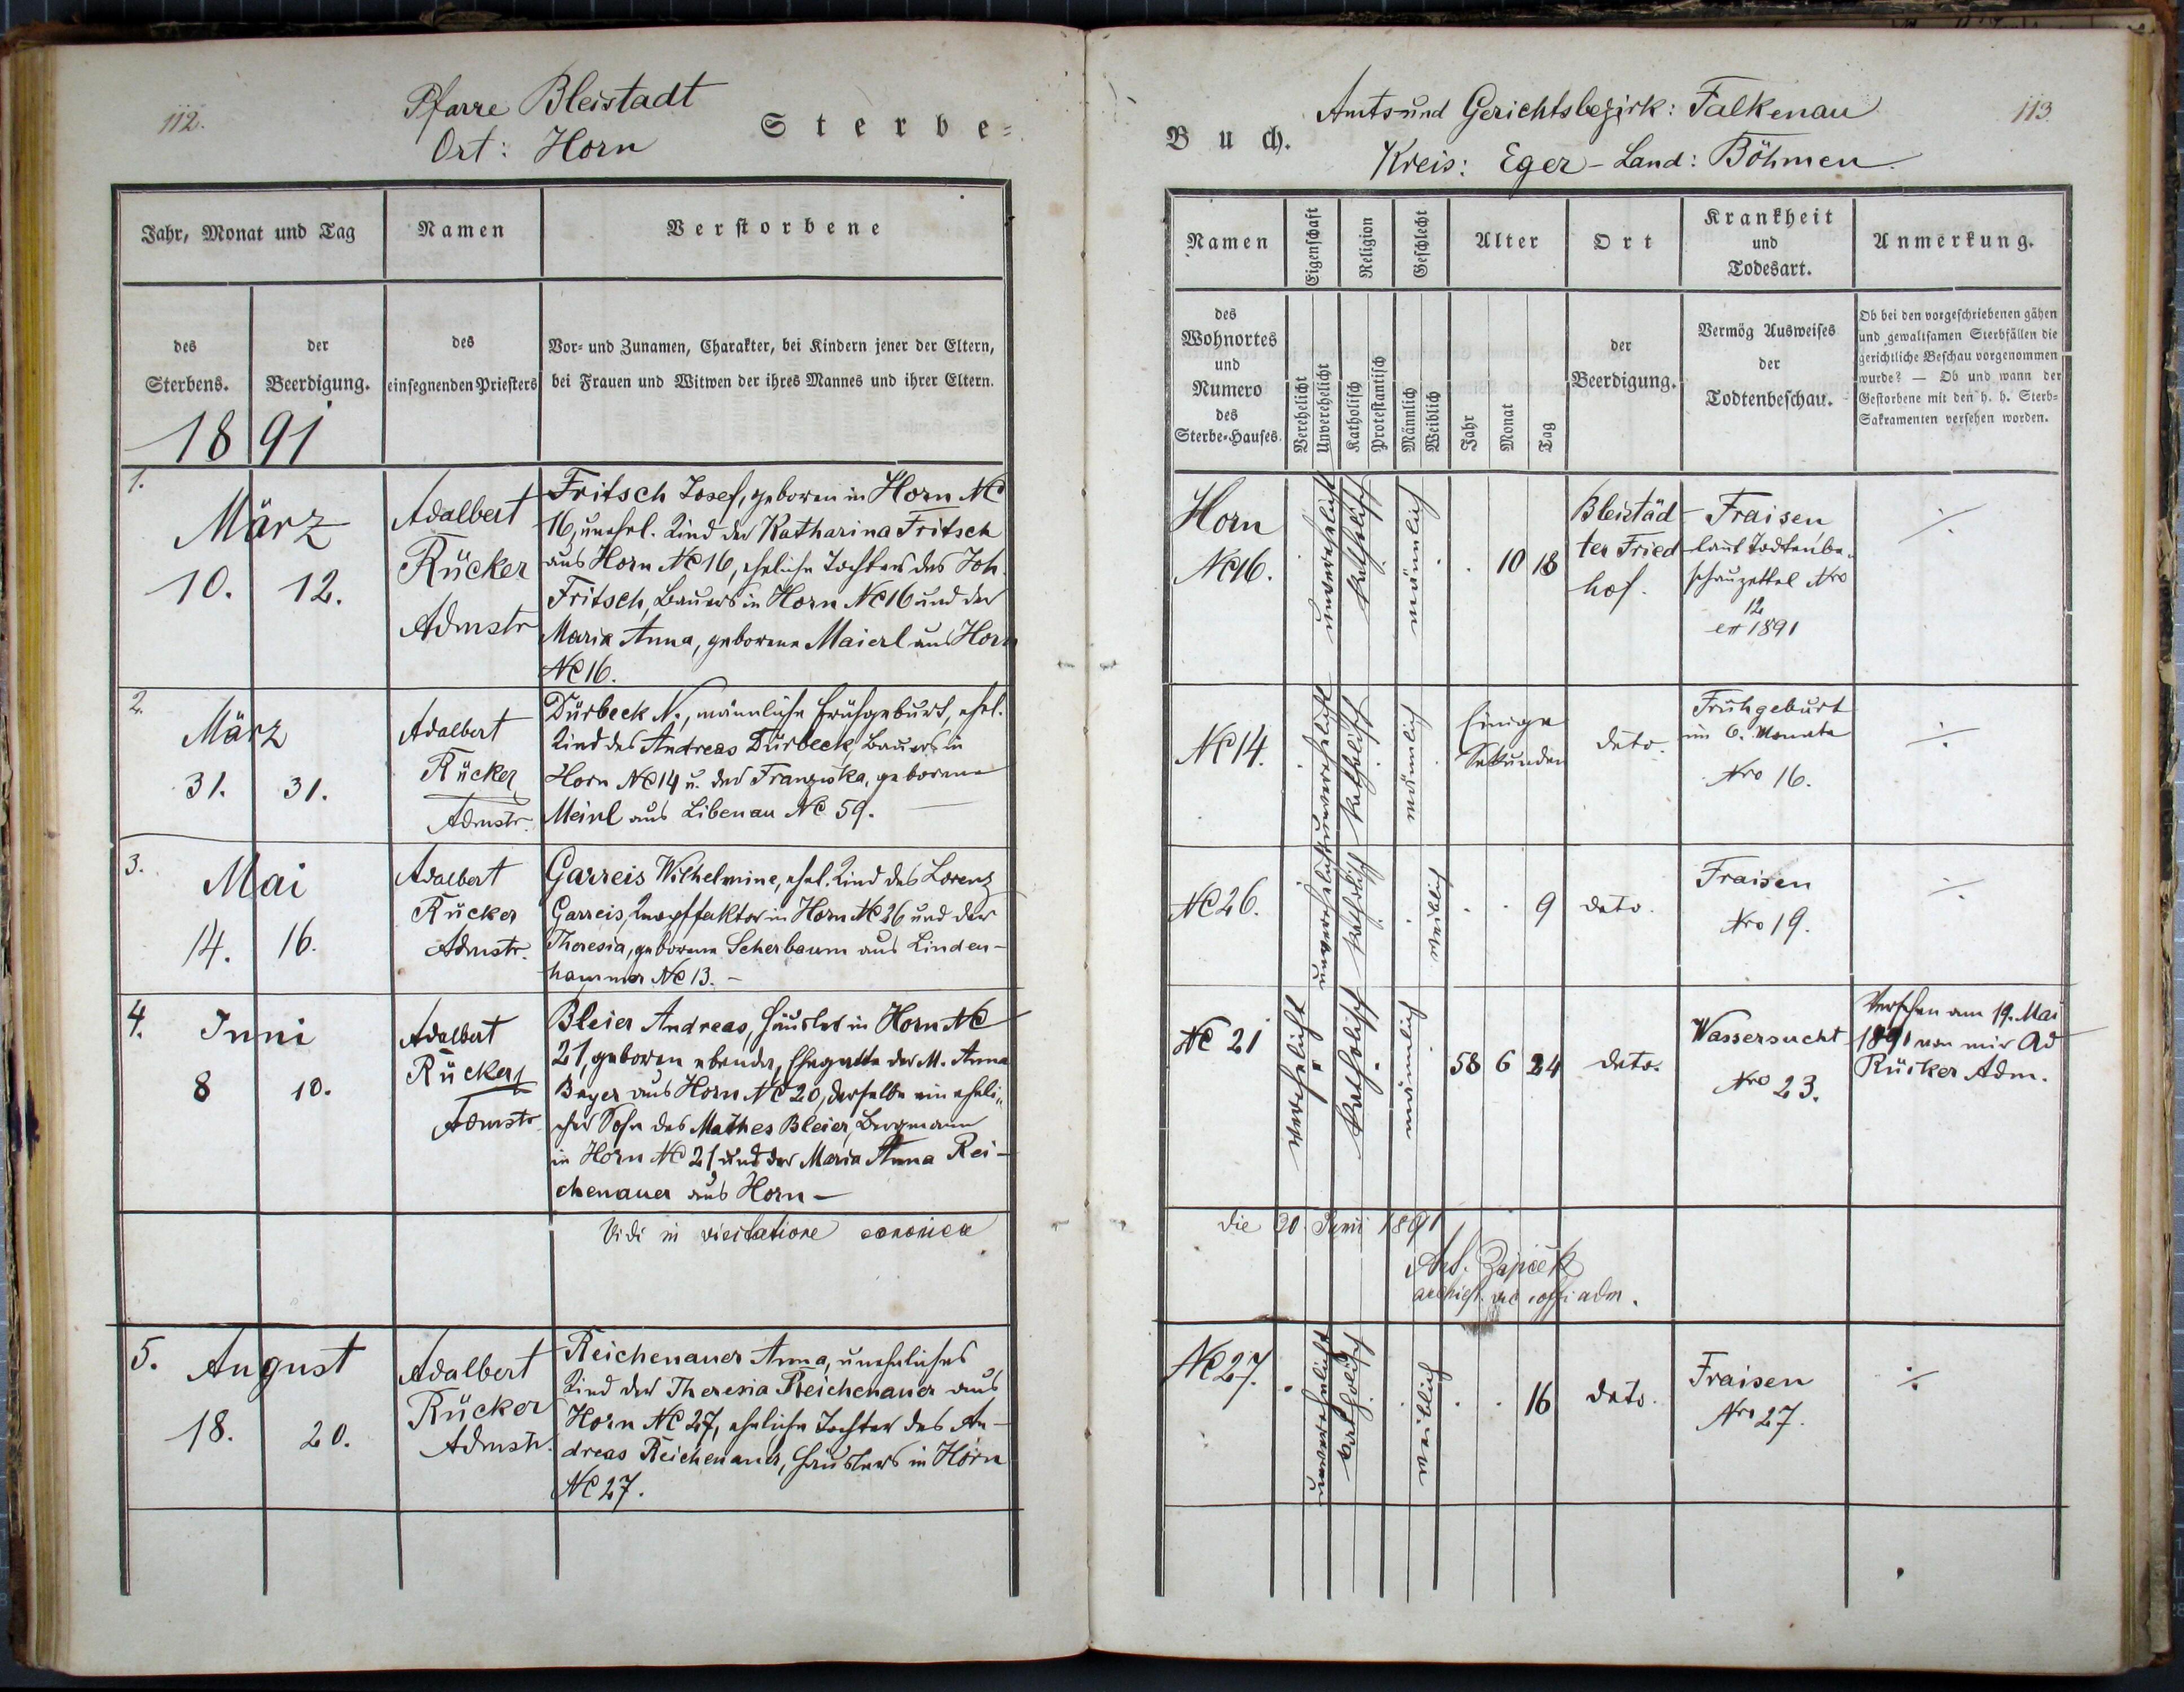 112.
Pfarre Bleistadt
Ort: Horn
Sterbe-
Jahr, Monat und Tag
Namen
Verstorbene
des
Sterbens.
der
Beerdigung.
des
einsegnenden Priesters
Vor- und Zunamen, Charakter, bei Kindern jener der Eltern,
bei Frauen und Witwen der ihres Mannes und ihrer Eltern.
1891
1.
März
10. 12.
Adalbert
Rücker
Admstr
Fritsch Josef, geboren in Horn NC
16, unehel. Kind der Katharina Fritsch
aus Horn NC 16, eheliche Tochter des Joh.
Fritsch, Bauers in Horn NC 16 und der
Maria Anna, geborene Maierl aus Horn
NC 16.
2.
März
31. 31.
Adalbert
Rücker
Admstr.
Dürbeck N., männliche Frühgeburt, ehel.
Kind des Andreas Dürbeck, Bauers in
Horn NC 14 u. der Franziska, geborene
Meinl aus Libenau NC 59.
3.
Mai
14. 16.
Adalbert
Rücker
Admstr.
Garreis Wilhelmine, ehel. Kind des Lorenz
Garreis, Knopffaktor in Horn NC 26 und der
Theresia, geborene Scherbaum aus Linden-
hammer NC 13. -
4.
Juni
8 10.
Adalbert
Rücker
Admstr.
Bleier Andreas, Häusler in Horn NC
21, geboren ebenda, Ehegatte der M. Anna
Beyer aus Horn NC 20, derselbe ein eheli-
cher Sohn des Mathes Bleier, Bergmann
in Horn NC 21 und der Maria Anna Rei-
chenauer aus Horn -
Vidi in visitatione canonica
5.
August
18. 20.
Adalbert
Rücker
Admstr.
Reichenauer Anna, uneheliches
Kind der Theresia Reichenauer aus
Horn NC 27, eheliche Tochter des An-
dreas Reichenauer, Häuslers in Horn
NC 27.
Buch.
Amts- und Gerichtsbezirk: Falkenau
Kreis: Eger - Land: Böhmen
113.
Namen
Eigenschaft
Religion
Geschlecht
Alter
Ort
Krankheit
und
Todesart.
Anmerkung.
des
Wohnortes
und
Numero
des
Sterbe-Hauses.
Verehelicht
Unverehelicht
Katholisch
Protestantisch
Männlich
Weiblich
Jahr
Monat
Tag
der
Beerdigung.
Vermög Ausweises
der
Todtenbeschau.
Ob bei den vorgeschriebenen gähen
und gewaltsamen Sterbfällen die
gerichtliche Beschau vorgenommen
wurde? — Ob und wann der
Gestorbene mit den h. h. Sterb-
Sakramenten versehen worden.
Horn
NC 16.
unverehelicht
katholisch
männlich
10 18
Bleistäd-
ter Fried
hof.
Fraisen
laut Todtenbe-
schauzettel Nro
12
1891
NC 14.
unverehelicht
katholisch
männlich
Einige
Sekunden
deto.
Frühgeburt
im 6. Monate
Nro 16.
NC 26.
unverehelicht
katholisch
weiblich
9
deto.
Fraisen
Nro 19.
NC 21
verehelicht
katholisch
männlich
58 6 24
deto.
Wassersucht
Nro 23.
Versehen am 19. Mai
1891 von mir Ad
Rücker Adm.
die 20 Junii 1891
NC 27.
unverehelicht
katholisch
weiblich
16
deto.
Fraisen
Nro 27.